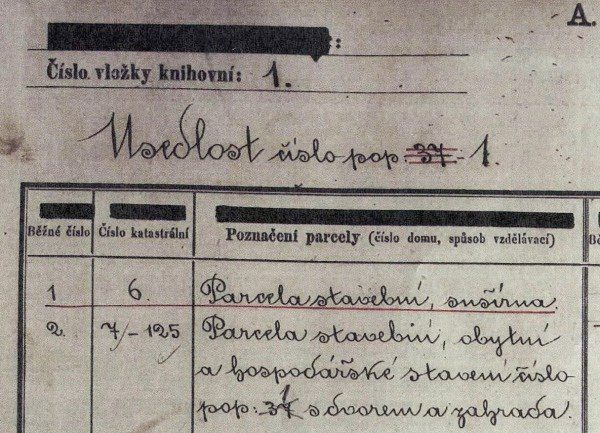 A.
:
Číslo vložky knihovní: 1.
Usedlost číslo pop. 37 1.
Běžné číslo Číslo katastrální Poznačení parcely (číslo domu, spůsob vzdělávací)
1 6. Parcela stavební, sušírna.
2. 7/-125 Parcela stavební, obytní
a hospodářské stavení číslo
pop: 37 1 s dvorem a zahrada.